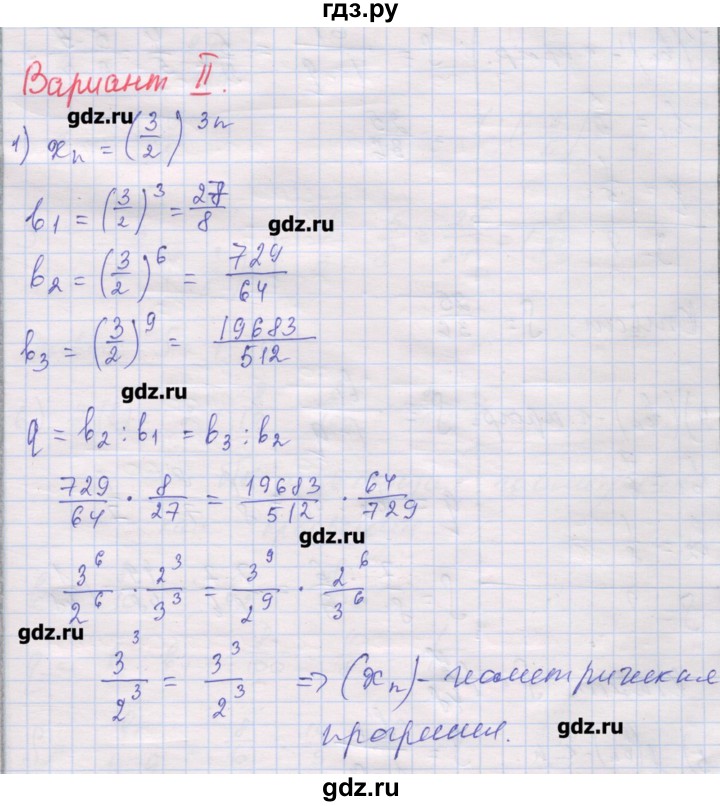 гдз.ру
Вариант II.
gdz.ru
1) xₙ = (3/2)³ⁿ
b₁ = (3/2)³ = 27/8
gdz.ru
b₂ = (3/2)⁶ = 729/64
b₃ = (3/2)⁹ = 19683/512
gdz.ru
q = b₂ : b₁ = b₃ : b₂
729/64 · 8/27 = 19683/512 · 64/729
gdz.ru
3⁶/2⁶ · 2³/3³ = 3⁹/2⁹ · 2⁶/3⁶
gdz.ru
3³/2³ = 3³/2³ => (xₙ) - геометрическая
прогрессия.
gdz.ru
gdz.ru